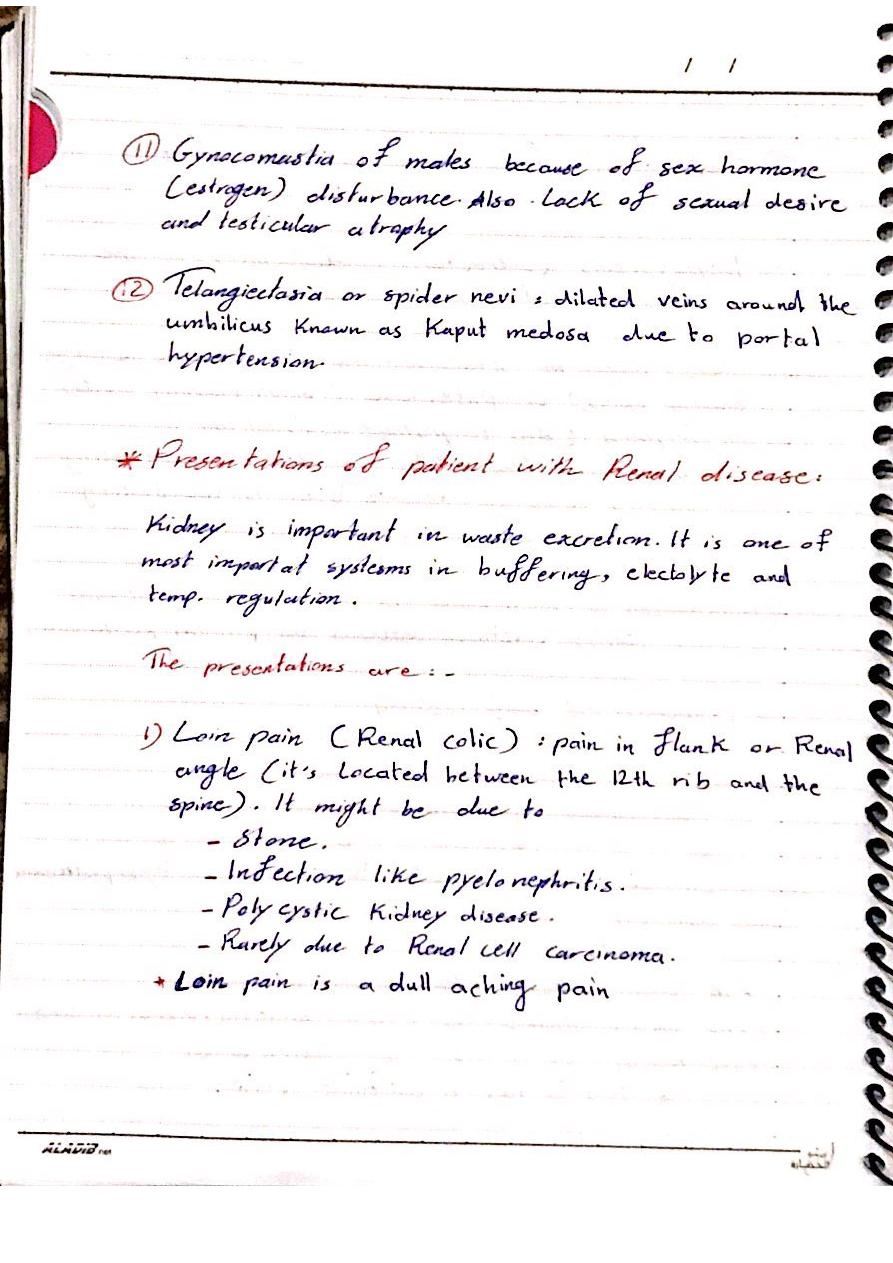 / /
11 Gynocomastia of males because of sex hormone
(estrogen) disturbance. Also. Lack of sexual desire
and testicular atrophy
12 Telangiectasia or spider nevi : dilated veins around the
umbilicus Known as Kaput medosa due to portal
hypertension.
* Presentations of patient with Renal disease:
Kidney is important in waste excretion. It is one of
most importat systesms in buffering, electolyte and
temp. regulation.
The presentations are : -
1) Loin pain (Renal colic) : pain in flank or Renal
angle (it's Located between the 12th rib and the
spine). It might be due to
- Stone.
- Infection like pyelonephritis.
- Poly cystic Kidney disease.
- Rarely due to Renal cell carcinoma.
* Loin pain is a dull aching pain
ALADIB.net